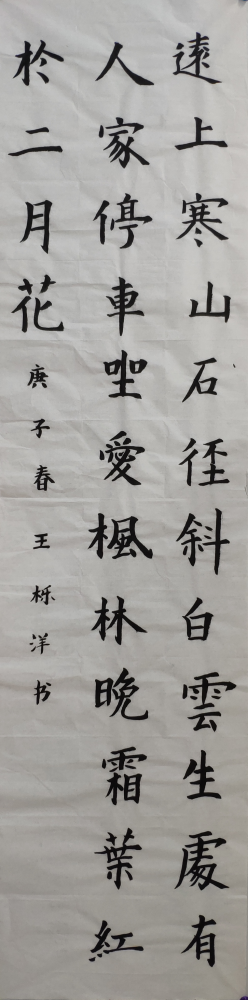 遠上寒山石徑斜白雲生處有
人家停車坐愛楓林晚霜葉紅
於二月花
庚子春王栎洋书